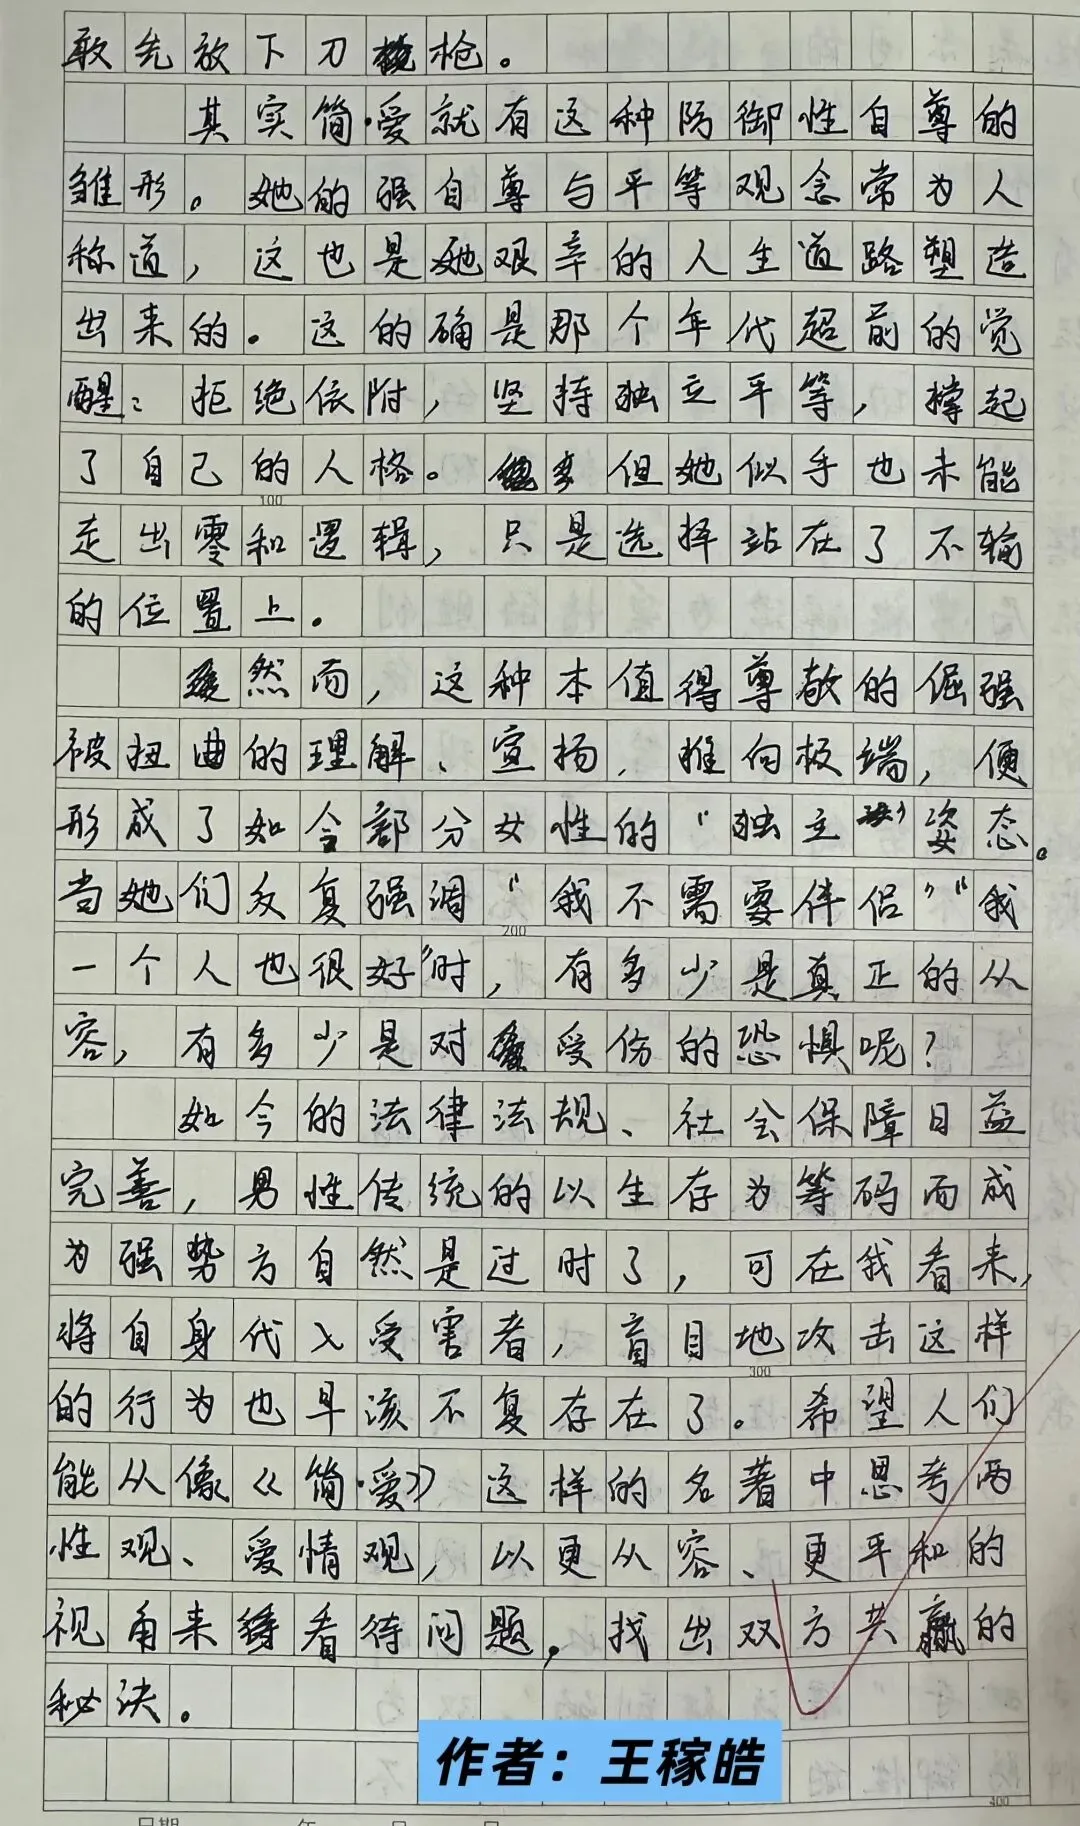 敢先放下刀枪。
其实简·爱就有这种防御性自尊的
雏形。她的强自尊与平等观念常为人
称道，这也是她艰辛的人生道路塑造
出来的。这的确是那个年代超前的觉
醒：拒绝依附，坚持独立平等，撑起
了自己的人格。但她似乎也未能
100
走出零和逻辑，只是选择站在了不输
的位置上。
然而，这种本值得尊敬的倔强
被扭曲的理解、宣扬，推向极端，便
形成了如今部分女性的“独立”姿态。
当她们反复强调“我不需要伴侣”“我
200
一个人也很好”时，有多少是真正的从
容，有多少是对受伤的恐惧呢？
如今的法律法规、社会保障日益
完善，男性传统的以生存为筹码而成
为强势方自然是过时了，可在我看来，
将自身代入受害者，盲目地攻击这样
300
的行为也早该不复存在了。希望人们
能从像《简·爱》这样的名著中思考两
性观、爱情观，以更从容、更平和的
视角来看待问题，找出双方共赢的
秘诀。
作者：王稼皓
400